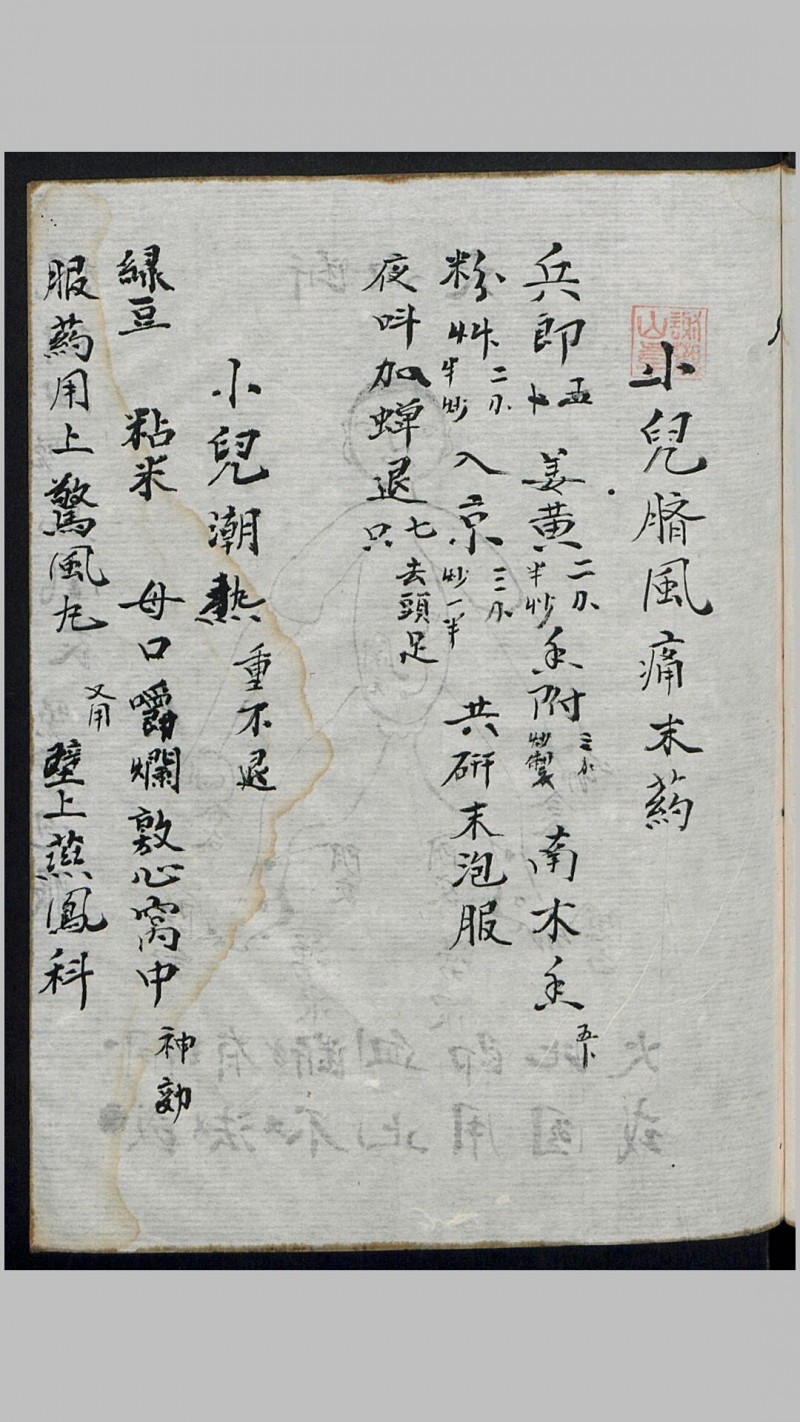 小兒臍風痛末葯
兵郎 姜黃二刀半炒 香附三刀炒製 南木香五卜
粉艸二刀半炒 入京三刀炒一半 共研末泡服
夜呌加蟬退七只去頭足
小兒潮熱 重不退
綠豆 粘米 母口嚼爛敷心窩中 神効
服葯用上驚風丸 又用 壁上燕鳳科